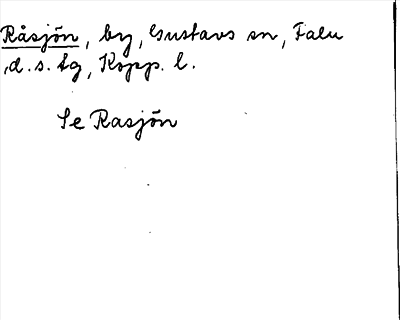 Råsjön, by, Gustavs sn, Falu
d. s. tg, Kopp. l.
Se Rasjön